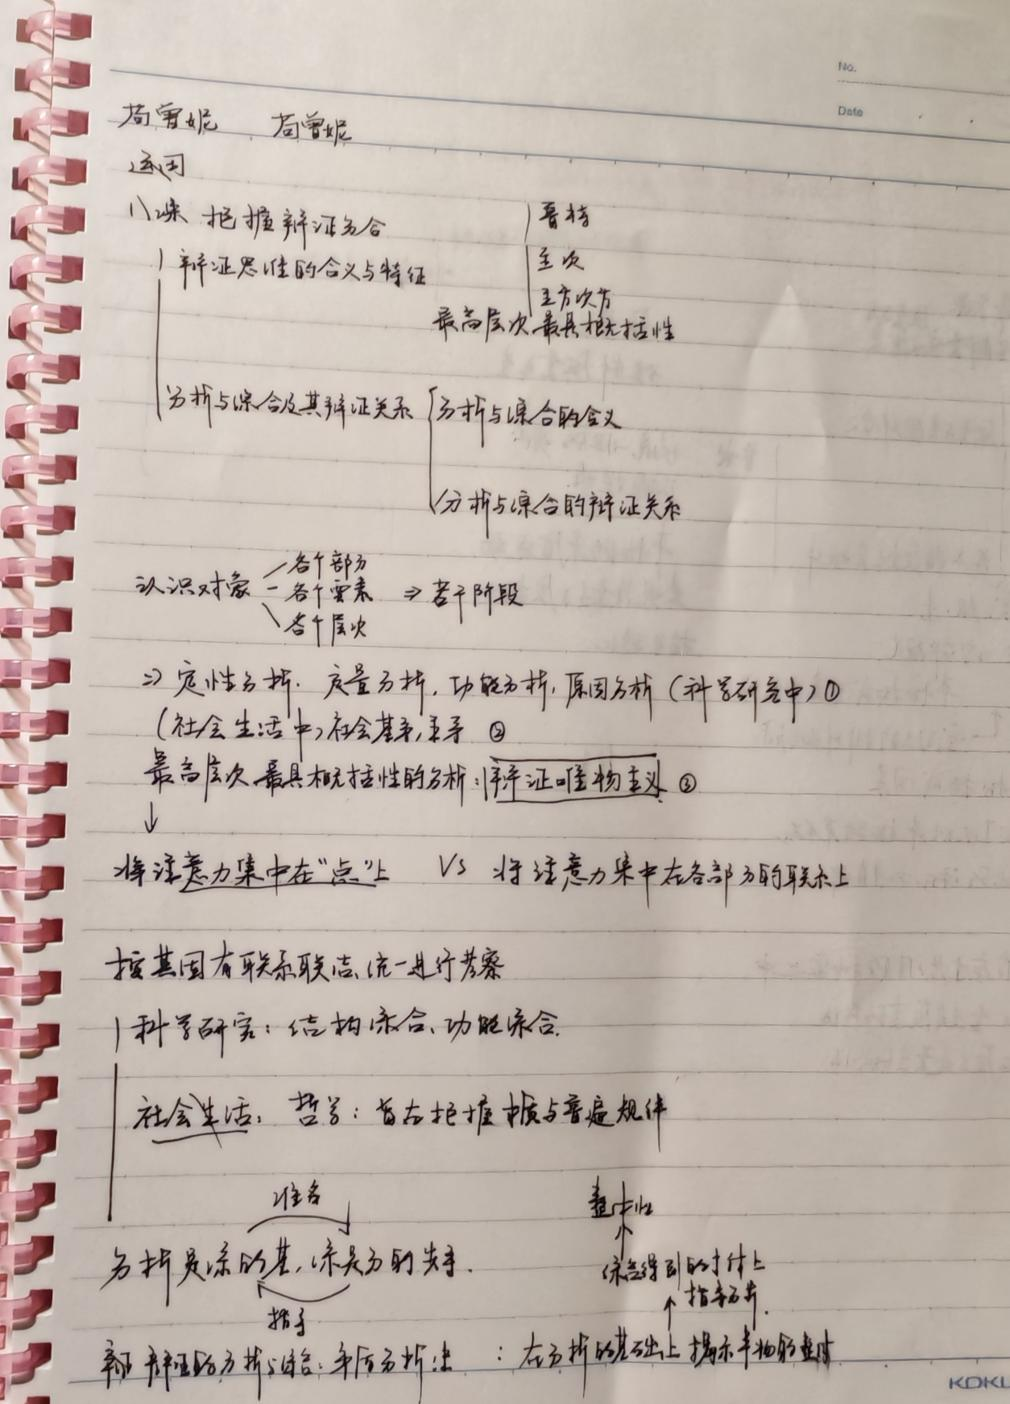 No.
Date
苟曾妮 苟曾妮
运困
八课 把握辩证分合
普特
主次
辩证思维的含义与特征
主方次方
最高层次 最具概括性
分析与综合及其辩证关系 分析与综合的含义
分析与综合的辩证关系
各个部分
认识对象 各个要素 ⇒ 若干阶段
各个层次
⇒ 定性分析. 定量分析, 功能分析, 原因分析 (科学研究中) ①
(社会生活中) 社会基矛, 主矛 ②
最高层次 最具概括性的分析: 辩证唯物主义 ③
↓
将注意力集中在“点”上 VS 将注意力集中在各部分的联系上
按其固有联系联结, 统一进行考察
科学研究: 结构综合、功能综合.
社会生活, 哲学: 旨在把握本质与普遍规律
准备
整体性
分析是综的基, 综是分的先导.
综合得到的才上
指导分析.
指导
辩证的分析与综合: 矛盾分析法 : 在分析的基础上揭示事物的整体
KOKU